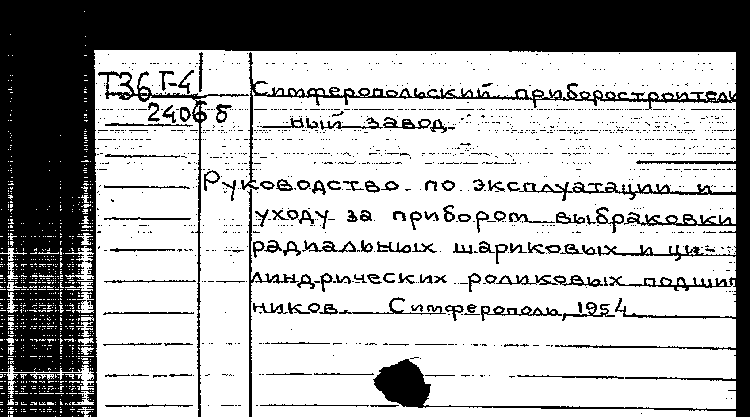 Т36 Г-4
2406 б
Симферопольский приборостроитель
ный завод.
Руководство по эксплуатации и
уходу за прибором выбраковки
радиальных шариковых и ци-
линдрических роликовых подшип
ников. Симферополь, 1954.